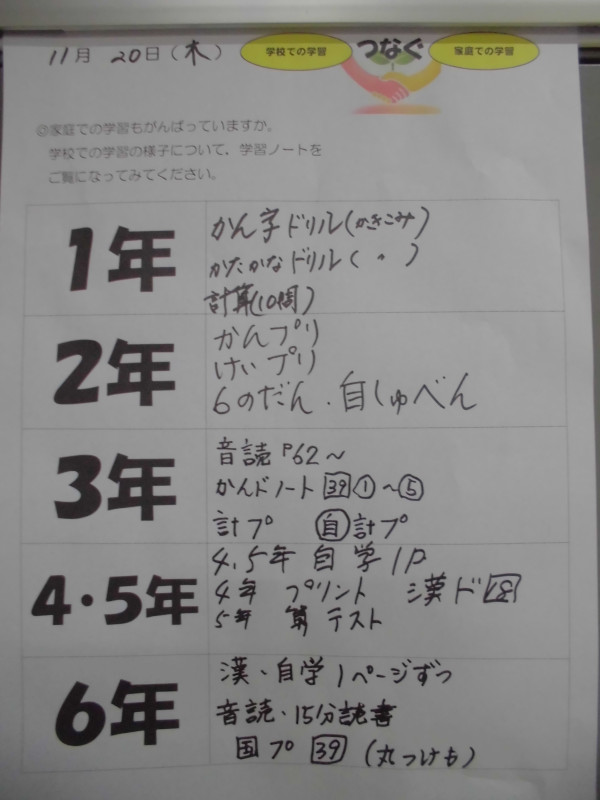 11月 20日(木)
学校での学習 つなぐ 家庭での学習
◎家庭での学習もがんばっていますか。
学校での学習の様子について、学習ノートを
ご覧になってみてください。
1年
かん字ドリル(かきこみ)
かたかなドリル( 〃 )
計算(10問)
2年
かんプリ
けいプリ
6のだん・自しゅべん
3年
音読 P62~
かんドノート 39 ①~⑤
計プ 自 計プ
4・5年
4.5年 自学 1P
4年 プリント 漢ド
5年 算 テスト
6年
漢・自学 1ページずつ
音読・15分読書
国プ 39 (丸つけも)